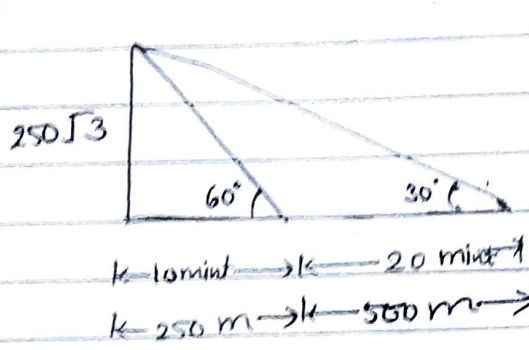 250√3
60° 30°
10mint 20 mint
250 m 500 m